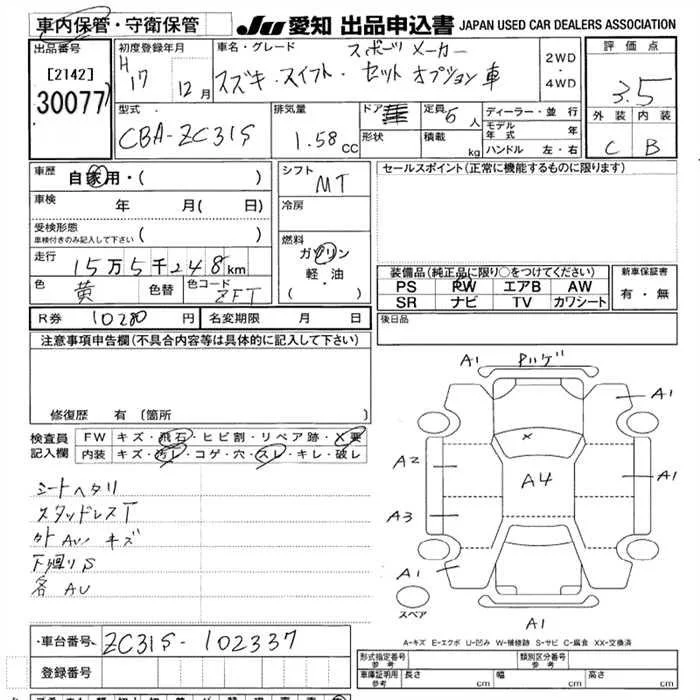 車内保管・守衛保管
JU 愛知 出品申込書 JAPAN USED CAR DEALERS ASSOCIATION
出品番号
[2142]
30077
初度登録年月
H17 12月
車名・グレード
スズキ・スイフト・スポーツ メーカー セットオプション車
2WD
・
4WD
評価点
3.5
外装 内装
C B
型式
CBA-ZC31S
排気量
1.58cc
ドア
形状
定員 5人
積載 kg
ディーラー・並行
モデル年式 年
ハンドル 左・右
車歴 自家用・( )
車検 年 月( 日)
受検形態
車検付きのみ記入して下さい ( )
走行
15万5千248km
色 黄 色替 色コード ZFT
R券 10280 円 名変期限 月 日
シフト
MT
冷房
燃料
ガソリン
軽・油
( ・ )
セールスポイント(正常に機能するものに限ります)
装備品(純正品に限り○をつけてください)
PS PW エアB AW
SR ナビ TV カワシート
新車保証書
有・無
後日品
注意事項申告欄(不具合内容等は具体的に記入して下さい)
修復歴 有 [箇所 ]
検査員記入欄
FW キズ・飛石・ヒビ割・リペア跡・X要
内装 キズ・汚レ・コゲ・穴・スレ・キレ・破レ
シートヘタリ
スタッドレスT
外AW キズ
下廻りS
各AU
A1 ハゲ
A1
×
A2
A4
A3
A1
A1
A1
スペア
A-キズ E-エクボ U-凹み W-補修跡 S-サビ C-腐食 XX-交換済
・車台番号 ZC31S-102337
登録番号
形式指定番号 参考 類別区分番号 参考
車庫証明用 参考 長さ cm 幅 cm 高さ cm